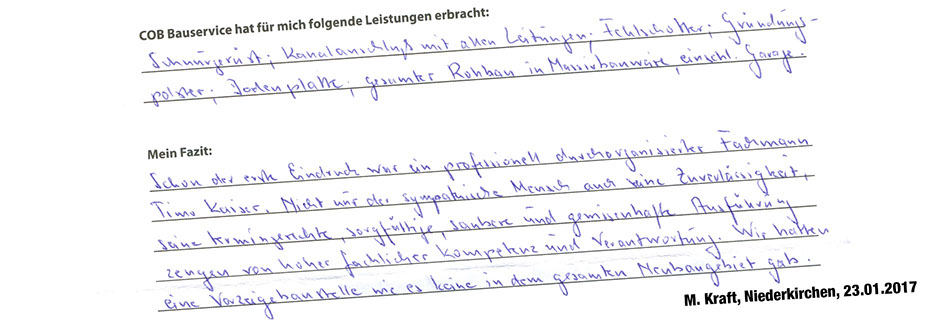 COB Bauservice hat für mich folgende Leistungen erbracht:
Schnurgerüst; Kanalanschluß mit allen Leitungen; Gründungs-
polster; Bodenplatte; gesamter Rohbau in Massivbauware, einschl. Garage.
Mein Fazit:
Schon der erste Eindruck war ein professionell durchorganisierter Fachmann
Timo Kaiser. Nicht nur der sympathische Mensch auch seine Zuverlässigkeit,
seine termingerechte, sorgfältige, saubere und gewissenhafte Ausführung
zeugen von hoher fachlicher Kompetenz und Verantwortung. Wir hatten
eine Vorzeigebaustelle wie es keine in dem gesamten Neubaugebiet gab.
M. Kraft, Niederkirchen, 23.01.2017